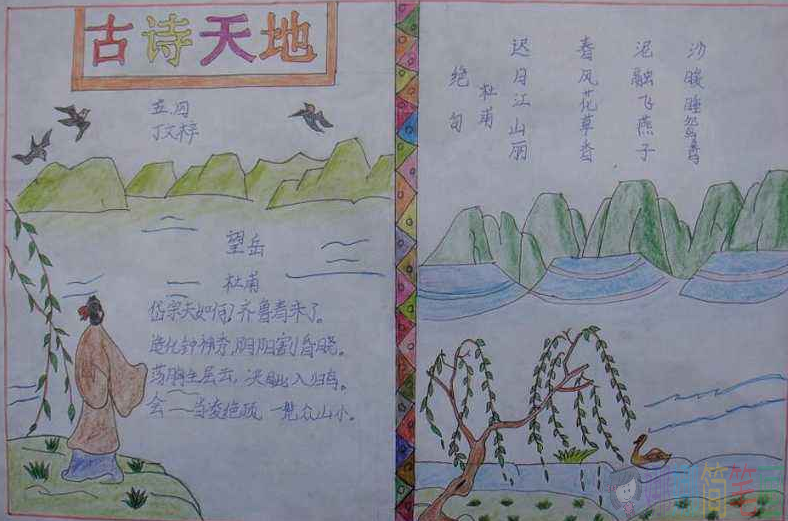 古诗天地
五.四
丁文梓
望岳
杜甫
岱宗夫如何?齐鲁青未了。
造化钟神秀,阴阳割昏晓。
荡胸生层云,决眦入归鸟。
会一当凌绝顶,一览众山小。
绝句
杜甫
迟日江山丽
春风花草香
泥融飞燕子
沙暖睡鸳鸯
简笔